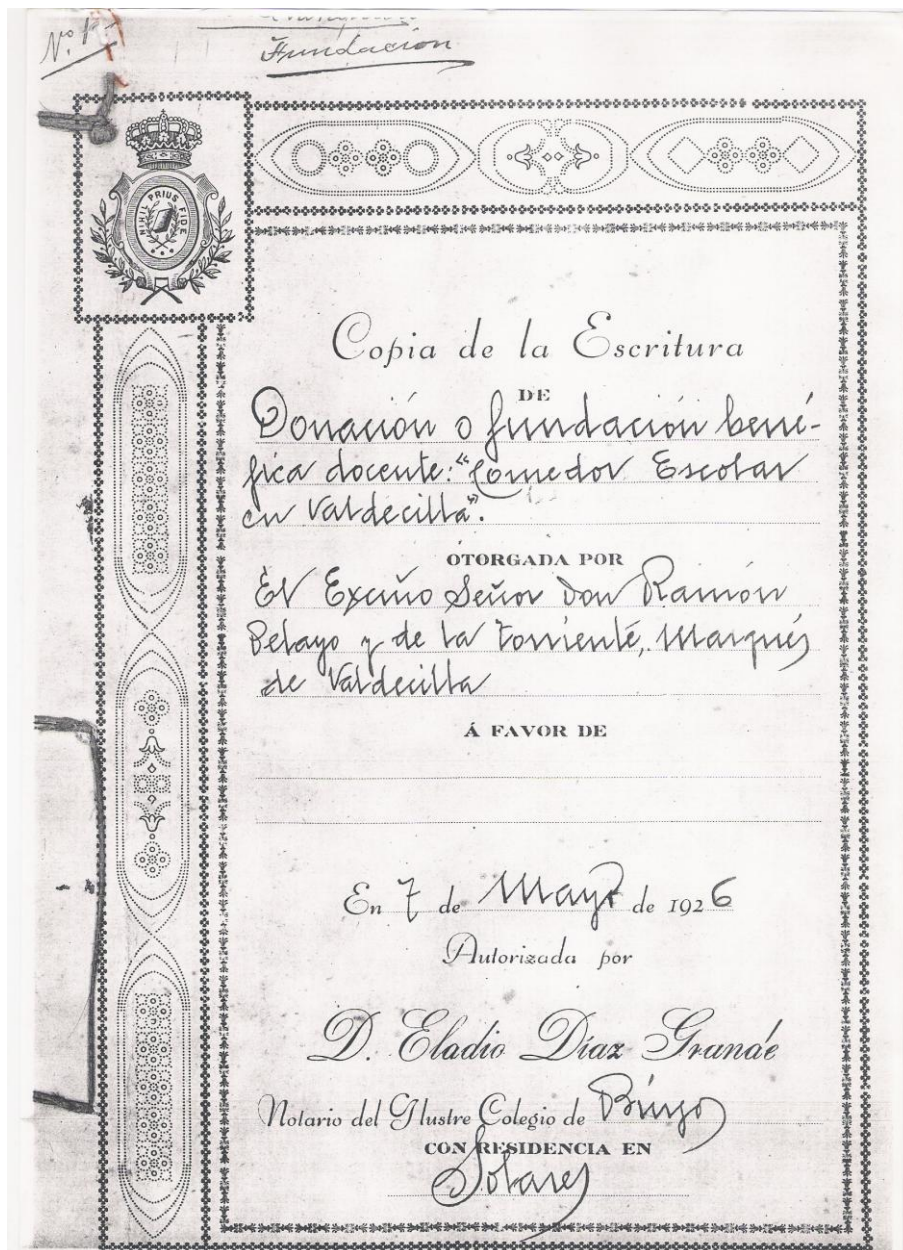 Nº 1
Fundacion
NIHIL PRIUS FIDE
Copia de la Escritura
DE
Donación o fundación bené-
fica docente: "Comedor Escolar
en Valdecilla".
OTORGADA POR
El Excmo Señor Don Ramón
Pelayo y de la Torriente, Marqués
de Valdecilla
Á FAVOR DE
En 7 de Mayo de 1926
Autorizada por
D. Eladio Díaz Grande
Notario del Ilustre Colegio de Burgos
CON RESIDENCIA EN
Solares